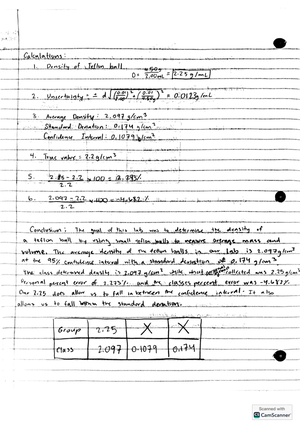 Calculations:
1. Density of Teflon ball
D = 4.50g / 2.00mL = 2.25 g/mL
2. Uncertainty = ± d √(0.01/)² + (0.01/)² = 0.0123 g/mL
3. Average Density: 2.097 g/cm³
Standard Deviation: 0.174 g/cm³
Confidence Interval: 0.1079 g/cm³
4. True value = 2.2 g/cm³
5. 2.25 - 2.2 / 2.2 × 100 = 2.273%
6. 2.097 - 2.2 / 2.2 × 100 = -4.682%
Conclusion: The goal of this lab was to determine the density of
a teflon ball by using small teflon balls to measure average mass and
volume. The average density of the teflon balls in our lab is 2.097g/cm³
at the 95% confidence interval with a standard deviation of 0.174 g/cm³
The class determined density is 2.097 g/cm³ collected was 2.25 g/cm³
Personal percent error of 2.273% and the classes percent error was -4.682%
Our 2.25 does allow us to fall in between the confidence interval. It also
allows us to fall within the standard deviation.
Group 2.25 X X
Class 2.097 0.1079 0.174
Scanned with
CS CamScanner